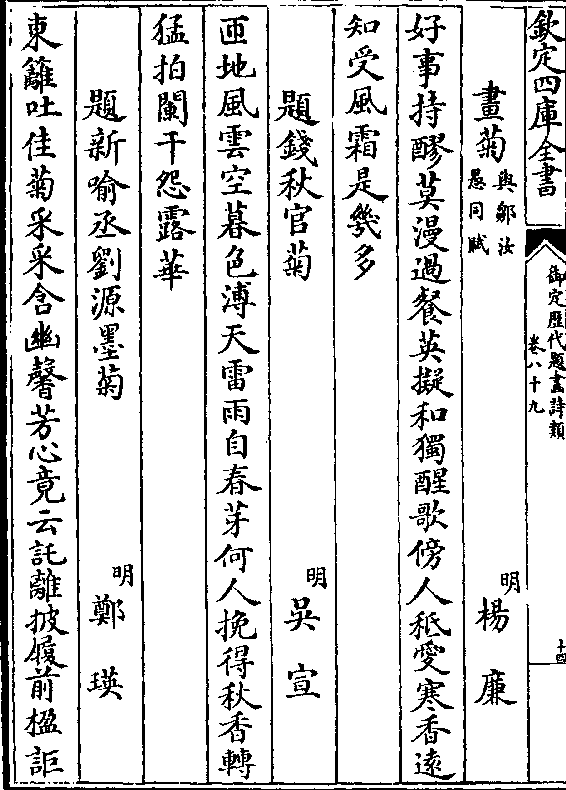 欽定四庫全書
御定歷代題畫詩類
卷八十九
十四
畫菊與鄒汝愚同賦
明楊廉
好事持醪莫漫過餐英擬和獨醒歌傍人秖愛寒香遠
知受風霜是幾多
題錢秋官菊
明吳宣
匝地風雲空暮色溥天雷雨自春芽何人挽得秋香轉
猛拍闌干怨露華
題新喻丞劉源墨菊
明鄭瑛
東籬吐佳菊采采含幽馨芳心竟云託離披履前楹詎